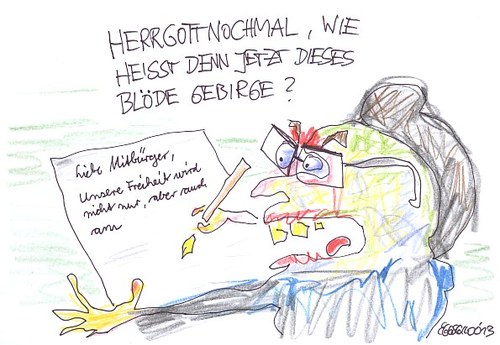 HERRGOTTNOCHMAL, WIE
HEISST DENN JETZT DIESES
BLÖDE GEBIRGE?
Liebe Mitbürger,
Unsere Freiheit wird
nicht nur, aber auch
am